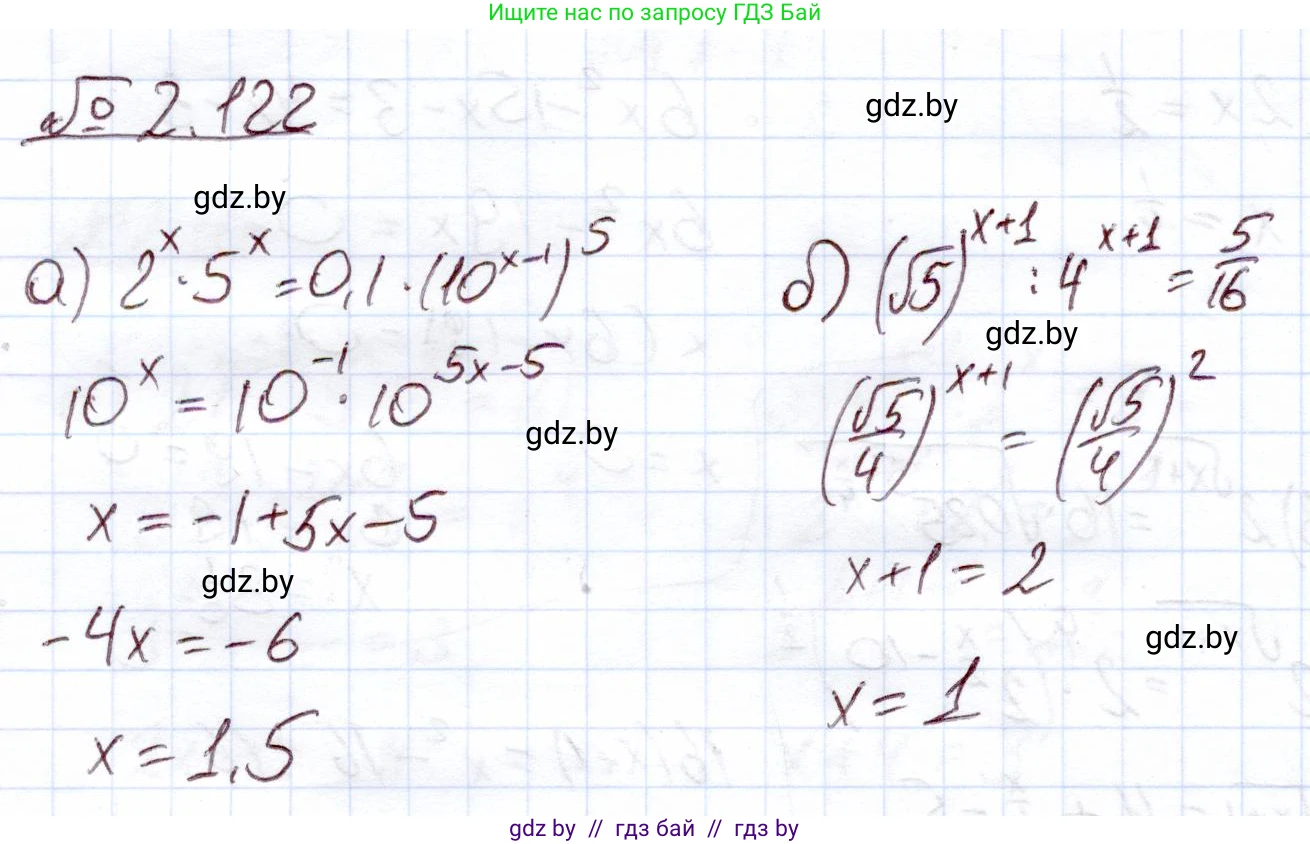 Ищите нас по запросу ГДЗ Бай
№ 2.122
gdz.by
gdz.by
а) 2^x · 5^x = 0,1 · (10^(x-1))^5
10^x = 10^(-1) · 10^(5x-5)
gdz.by
x = -1+5x-5
gdz.by
-4x = -6
x = 1,5
б) (√5)^(x+1) : 4^(x+1) = 5/16
gdz.by
(√5/4)^(x+1) = (√5/4)^2
x+1 = 2
gdz.by
x = 1
gdz by // гдз бай // гдз by